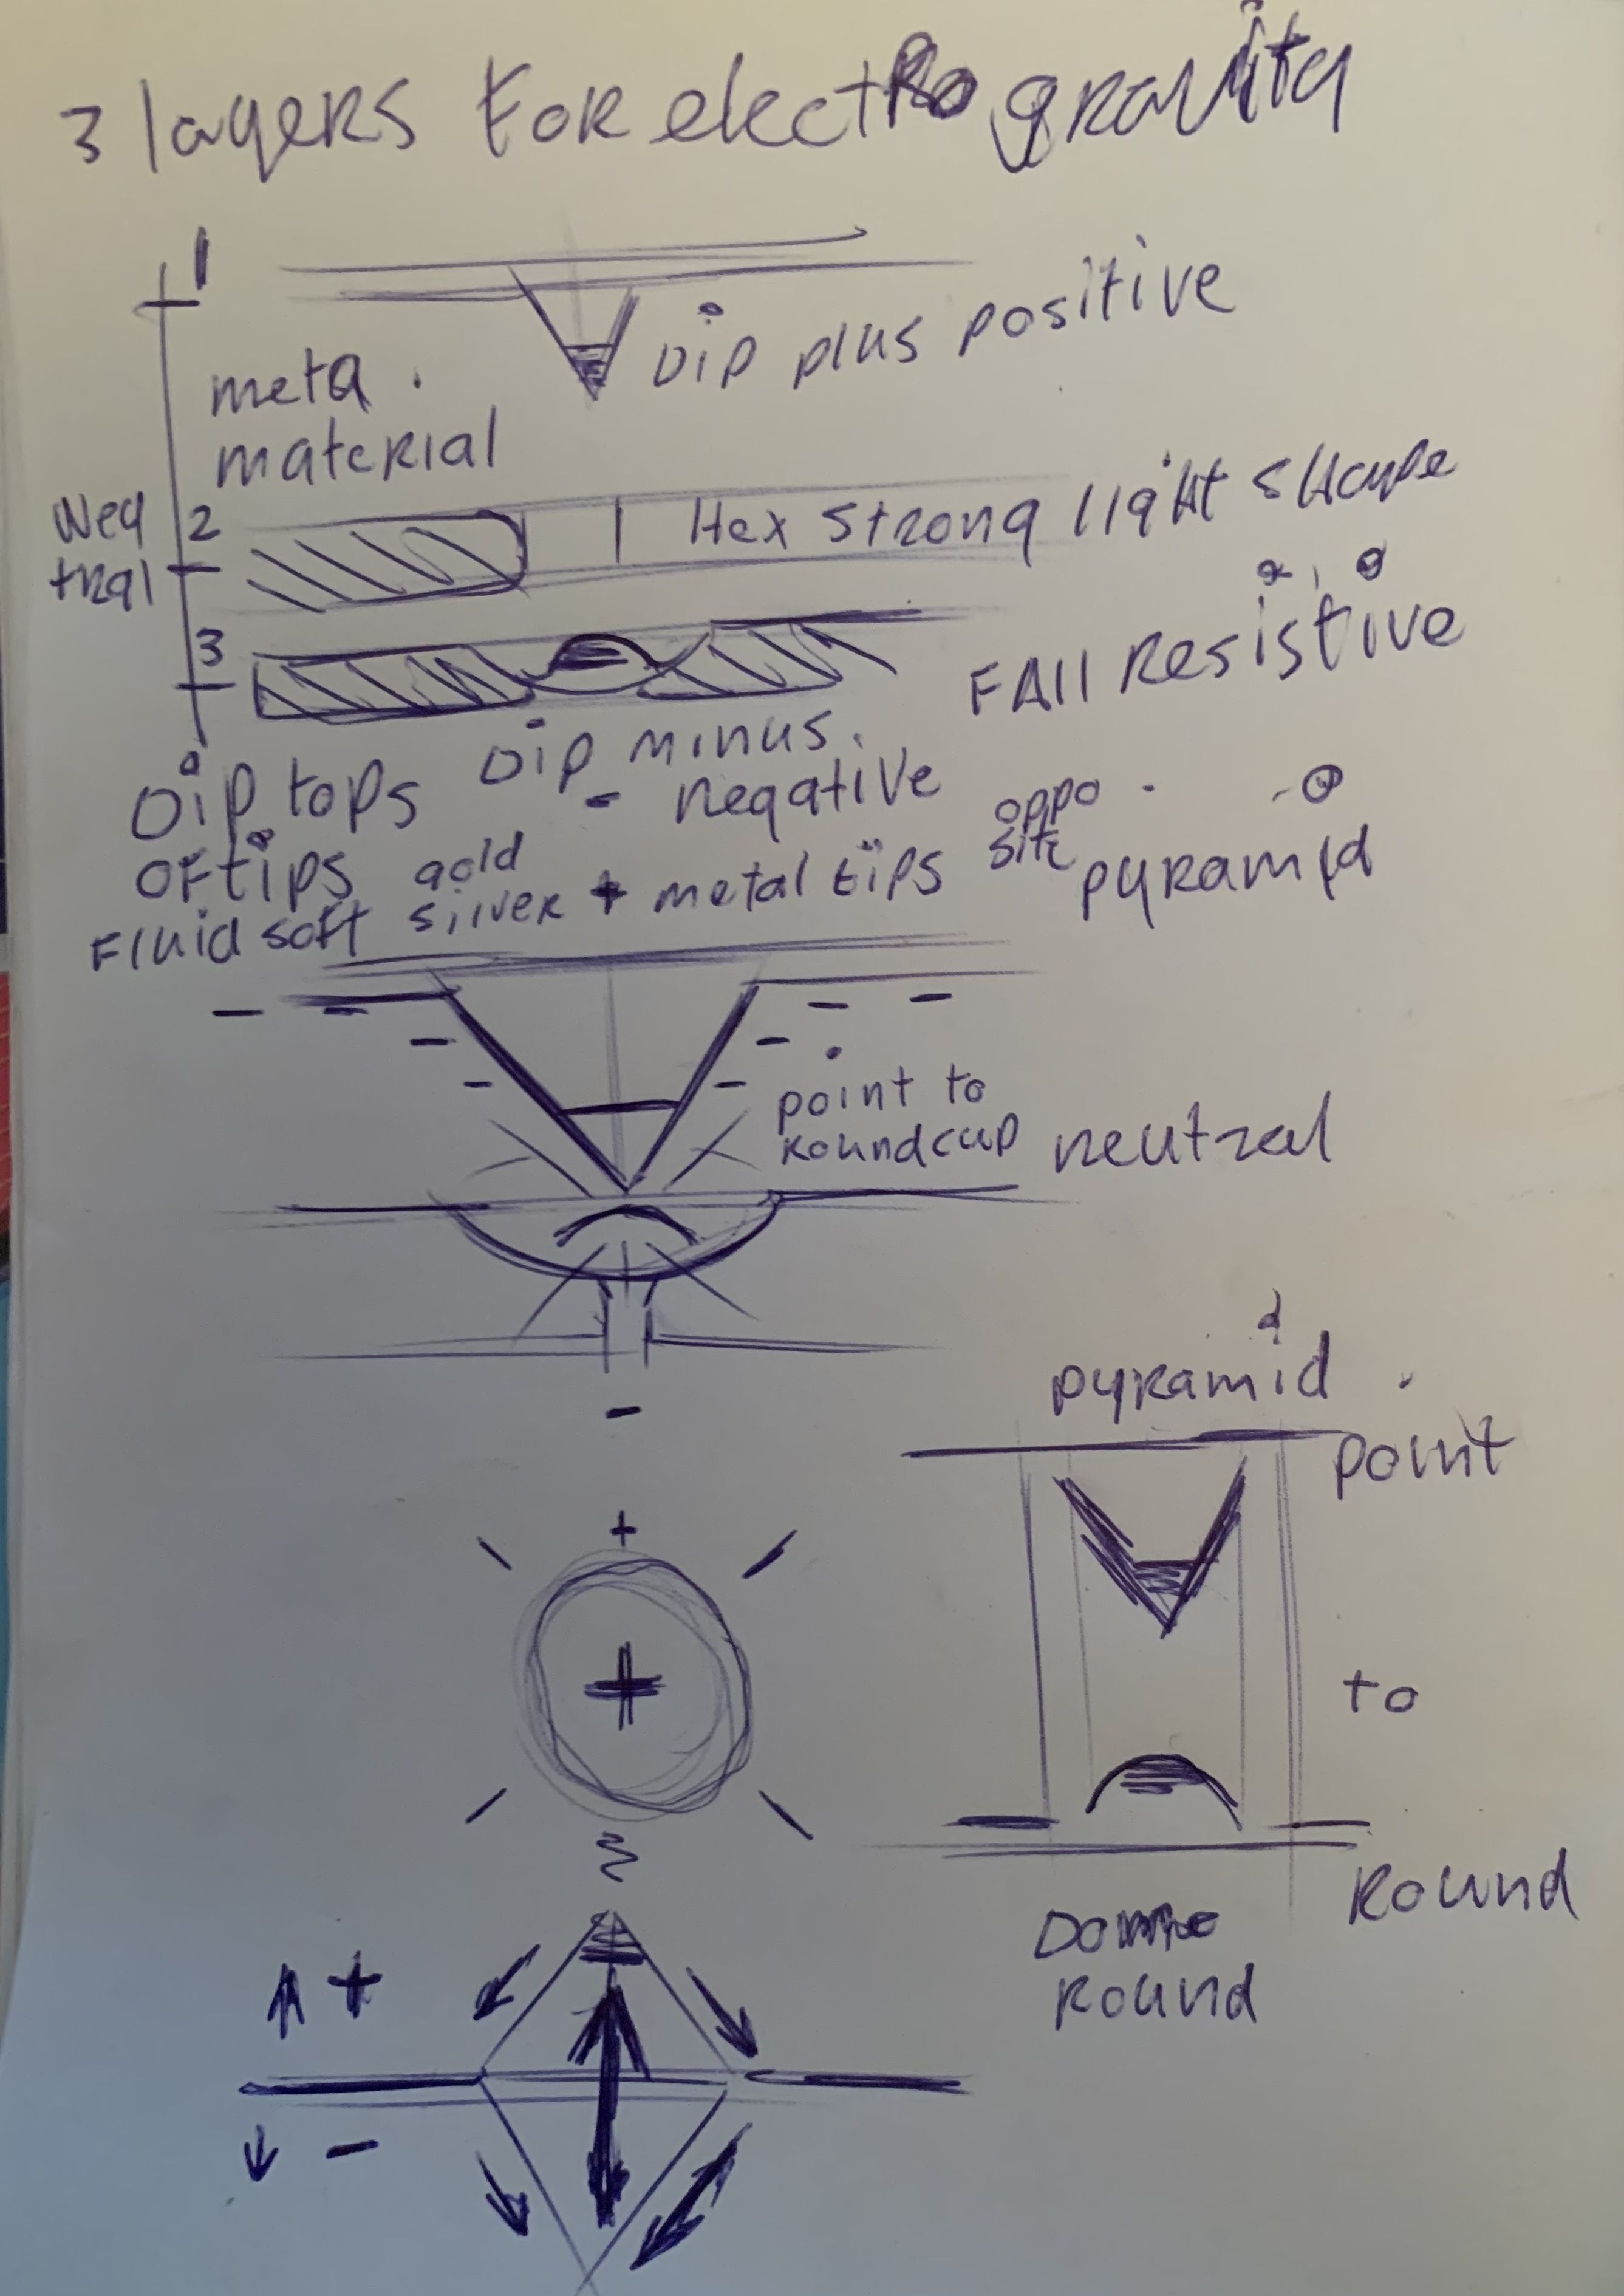 3 layers for electro gravity
1
Dip plus positive
meta
material
Neu
tral
2
Hex Strong light shape
3
FAll Resistive
Dip minus
- negative
Dip tops
OF tips
gold
Fluid soft silver + metal tips
oppo
site
pyramid
point to
Round cup
neutral
-
pyramid
point
+
+
to
Round
Dome
Round
↑ +
↓ -